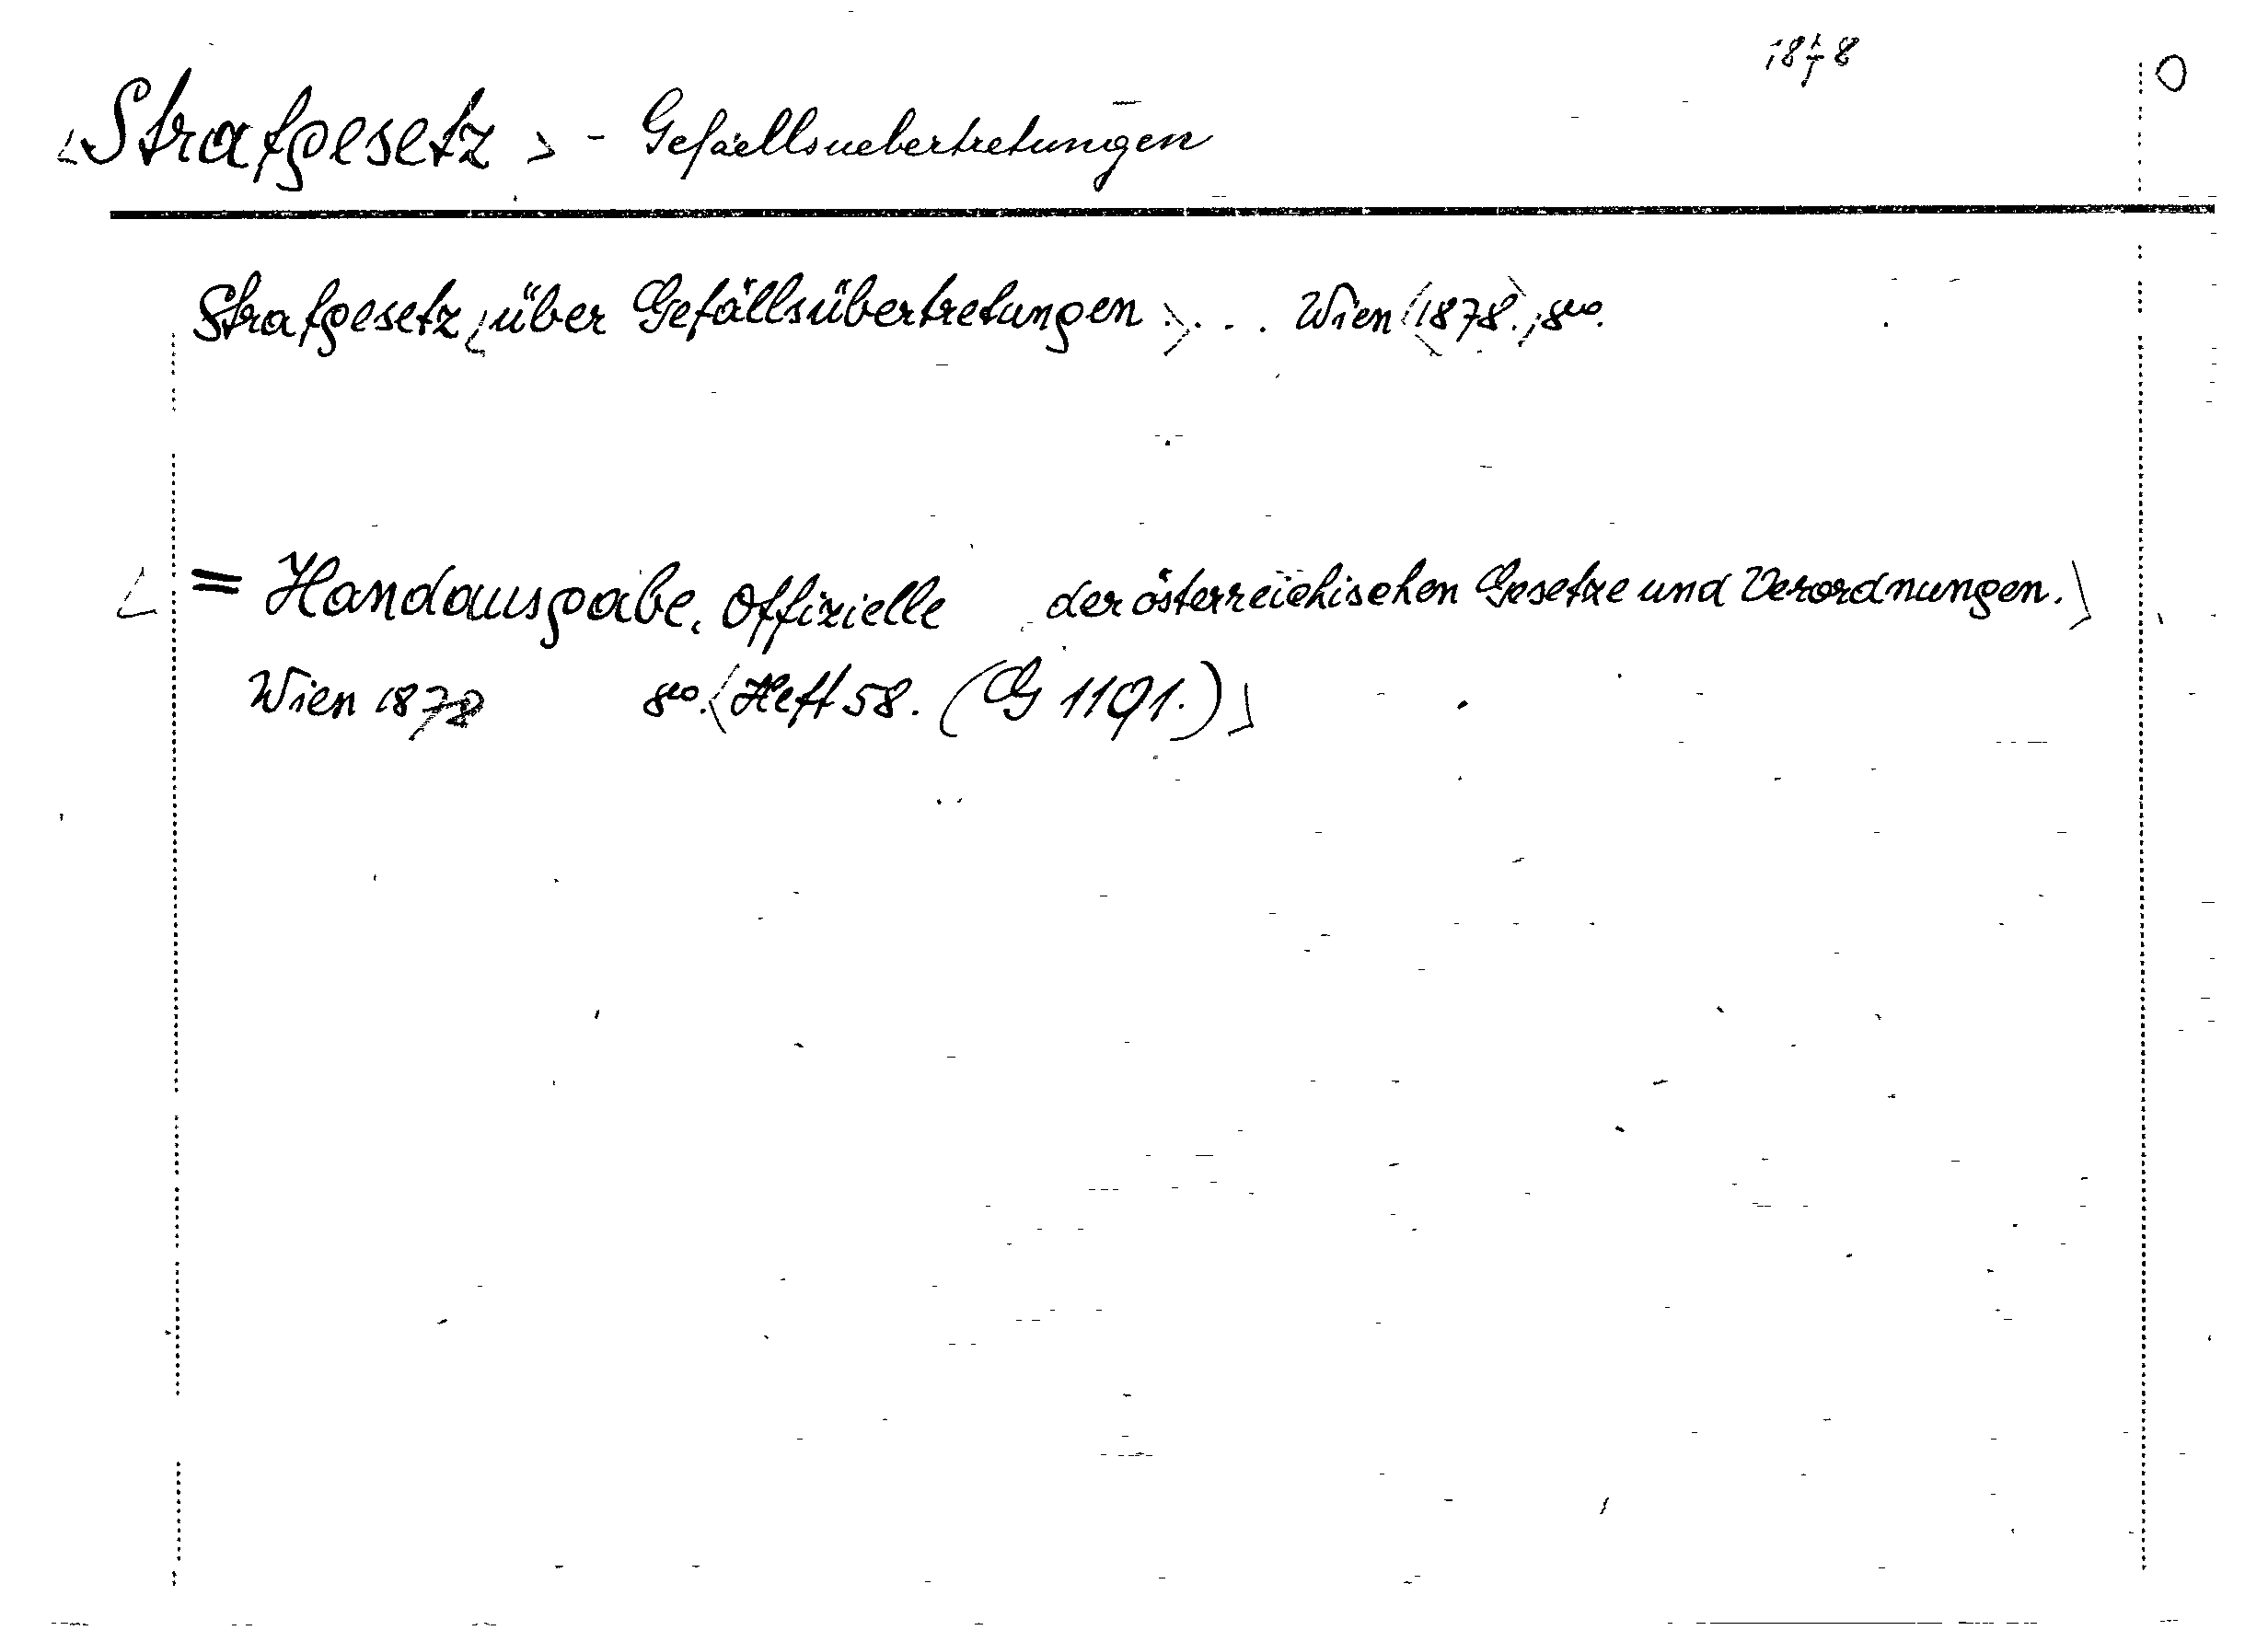 1878 O
<Strafgesetz> - Gefaellsuebertretungen
Strafgesetz <über Gefällsübertretungen.> ... Wien <1878.>, 8vo.
<= Handausgabe, Offizielle der österreichischen Gesetze und Verordnungen.>
Wien 1878 8vo. <Heft 58. (G 1191.)>